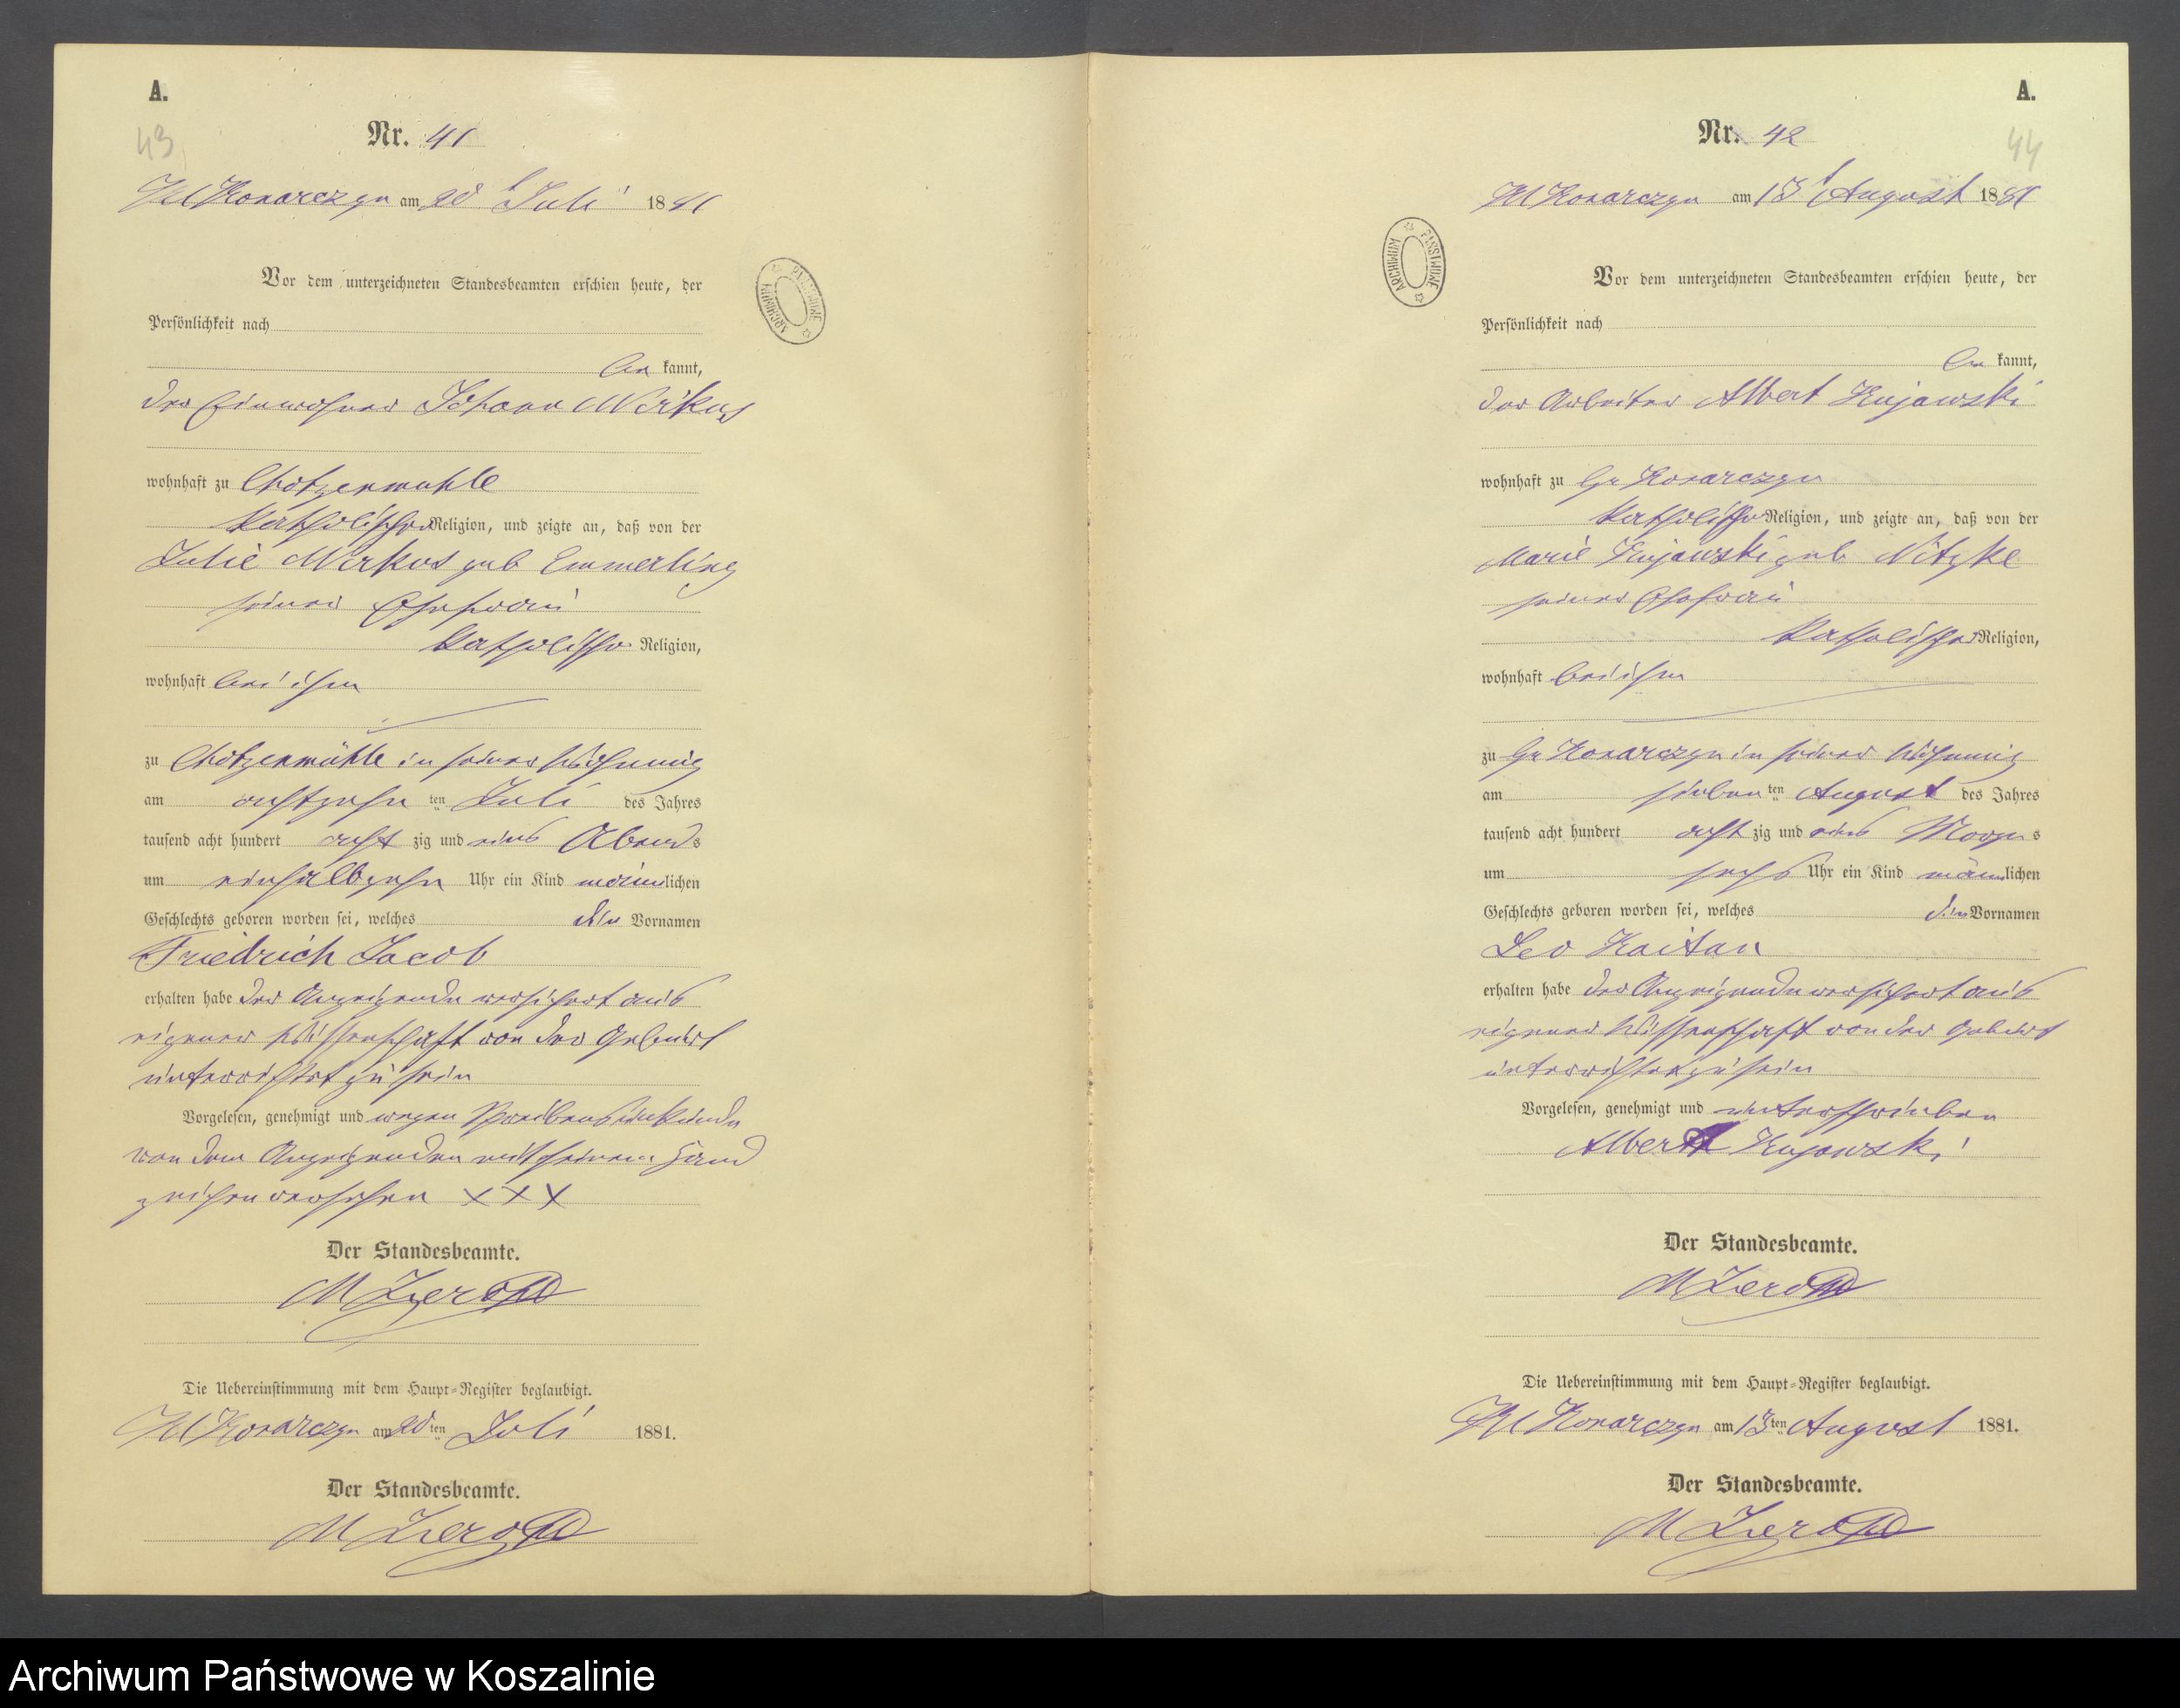 A.
43
Nr. 41
Kl Konarczyn am 20 t Juli 1881
Vor dem unterzeichneten Standesbeamten erschien heute, der
Persönlichkeit nach
be kannt,
der Einwohner Johann Mirkus
wohnhaft zu Chotzenmuhle
katholischer Religion, und zeigte an, daß von der
Julie Mirkus geb Emmerling
seiner Ehefrau
katholischer Religion,
wohnhaft bei ihm
zu Chotzenmühle in seiner Wohnung
am achtzehn ten Juli des Jahres
tausend acht hundert acht zig und eins Abends
um einhalbzehn Uhr ein Kind männlichen
Geschlechts geboren worden sei, welches die Vornamen
Friedrich Jacob
erhalten habe der Anzeigende versichert aus
eigener Wissenschaft von der Geburt
unterrichtet zu sein
Vorgelesen, genehmigt und wegen Schreibensunkunde
von dem Anzeigenden mit seinem Hand
zeichen versehen XXX
Der Standesbeamte.
Die Uebereinstimmung mit dem Haupt-Register beglaubigt.
Kl Konarczyn am 20 ten Juli 1881.
Der Standesbeamte.
A.
44
Nr. 42
Kl Konarczyn am 13 t August 1881
Vor dem unterzeichneten Standesbeamten erschien heute, der
Persönlichkeit nach
be kannt,
der Arbeiter Albert Kujawski
wohnhaft zu Gr Konarczyn
katholischer Religion, und zeigte an, daß von der
Marie Kujawski geb Nitzke
seiner Ehefrau
katholischer Religion,
wohnhaft bei ihm
zu Gr Konarczyn in seiner Wohnung
am sieben ten August des Jahres
tausend acht hundert acht zig und eins Morgens
um sechs Uhr ein Kind männlichen
Geschlechts geboren worden sei, welches die Vornamen
Leo Kaitan
erhalten habe der Anzeigende versichert aus
eigener Wissenschaft von der Geburt
unterrichtet zu sein
Vorgelesen, genehmigt und unterschrieben
Albert Kujawski
Der Standesbeamte.
Die Uebereinstimmung mit dem Haupt-Register beglaubigt.
Kl Konarczyn am 13 ten August 1881.
Der Standesbeamte.
ARCHIWUM PAŃSTWOWE
ARCHIWUM PAŃSTWOWE
Archiwum Państwowe w Koszalinie